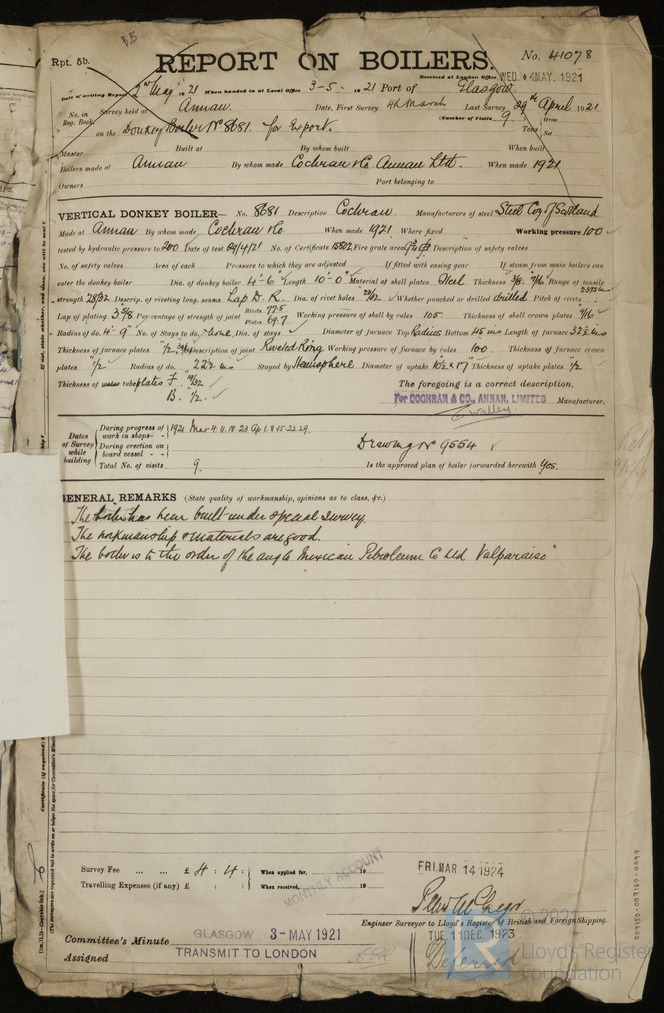 B.B
Rpt. 5b. REPORT ON BOILERS. No. 41078
Received at London Office WED. 4 MAY. 1921
Date of writing Report 2nd May 1921 When handed in at Local Office 3-5-1921 Port of Glasgow
No. in Reg. Book. Survey held at Annan Date, First Survey 4th March Last Survey 29th April 1921
on the Donkey Boiler No 8681. for Export. (Number of Visits 9) Tons Gross Net
Master Built at By whom built When built
Boilers made at Annan By whom made Cochran & Co Annan Ltd. When made 1921
Owners Port belonging to
VERTICAL DONKEY BOILER— No. 8681 Description Cochran Manufacturers of steel Steel Coy. of Scotland
Made at Annan By whom made Cochran & Co. When made 1921 Where fixed Working pressure 100
tested by hydraulic pressure to 200 Date of test 29/4/21 No. of Certificate 15502 Fire grate area Description of safety valves
No. of safety valves Area of each Pressure to which they are adjusted If fitted with easing gear If steam from main boilers can
enter the donkey boiler Dia. of donkey boiler 4'-6" Length 10'-0" Material of shell plates Steel Thickness 3/8 7/16 Range of tensile
strength 28/32 Descrip. of riveting long. seams Lap D. R. Dia. of rivet holes 29/32 Whether punched or drilled drilled Pitch of rivets 2.975 in
Lap of plating 3 5/8 Per centage of strength of joint Rivets 77.5 Plates 69.7 Working pressure of shell by rules 105 Thickness of shell crown plates 7/16
Radius of do. 4'-9" No. of Stays to do. None Dia. of stays Diameter of furnace Top Radius Bottom 45 ins Length of furnace 32 1/2 ins
Thickness of furnace plates 1/2 Description of joint Riveted Ring Working pressure of furnace by rules 100. Thickness of furnace crown
plates 1/2 Radius of do. 22 1/2 ins Stayed by Hemisphere Diameter of uptake 10 1/2 x 17 Thickness of uptake plates 1/2
Thickness of tube plates F. 19/32 The foregoing is a correct description,
B. 1/2 For COCHRAN & CO., ANNAN, LIMITED Manufacturer.
Dates of Survey while building During progress of work in shops - - 1921 Mar 4. 11. 18. 23 Ap 1. 8. 15. 22. 29.
During erection on board vessel - - Drawing No 9554
Total No. of visits 9. Is the approved plan of boiler forwarded herewith Yes.
GENERAL REMARKS (State quality of workmanship, opinions as to class, &c.)
The boiler has been built under special survey.
The workmanship & materials are good.
The boiler is to the order of the Anglo Mexican Petroleum Co Ltd Valparaiso
Survey Fee ... ... £ 4 : 4 : When applied for, 19
Travelling Expenses (if any) £ : : When received, 19
MONTHLY ACCOUNT
FRI. MAR. 14 1924
Engineer Surveyor to Lloyd's Register of British and Foreign Shipping.
Committee's Minute GLASGOW 3-MAY 1921 TUE. 11 DEC. 1923
Assigned TRANSMIT TO LONDON Deferred
Lloyd's Register
Foundation